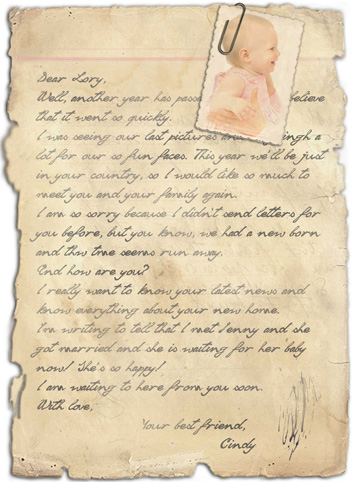 Dear Lory,
Well, another year has believe
that it went so quickly.
I was seeing our last pictures a
lot for our so fun faces. This year we'll be just
in your country, so I would like so much to
meet you and your family again.
I am so sorry because I didn't send letters for
you before, but you know, we had a new born
and the true seems run away.
And how are you?
I really want to know your latest news and
know everything about your new home.
I'm writing to tell that I met Jenny and she
got married and she is waiting for her baby
now! She's so happy!
I am waiting to here from you soon.
With love,
Your best friend,
Cindy